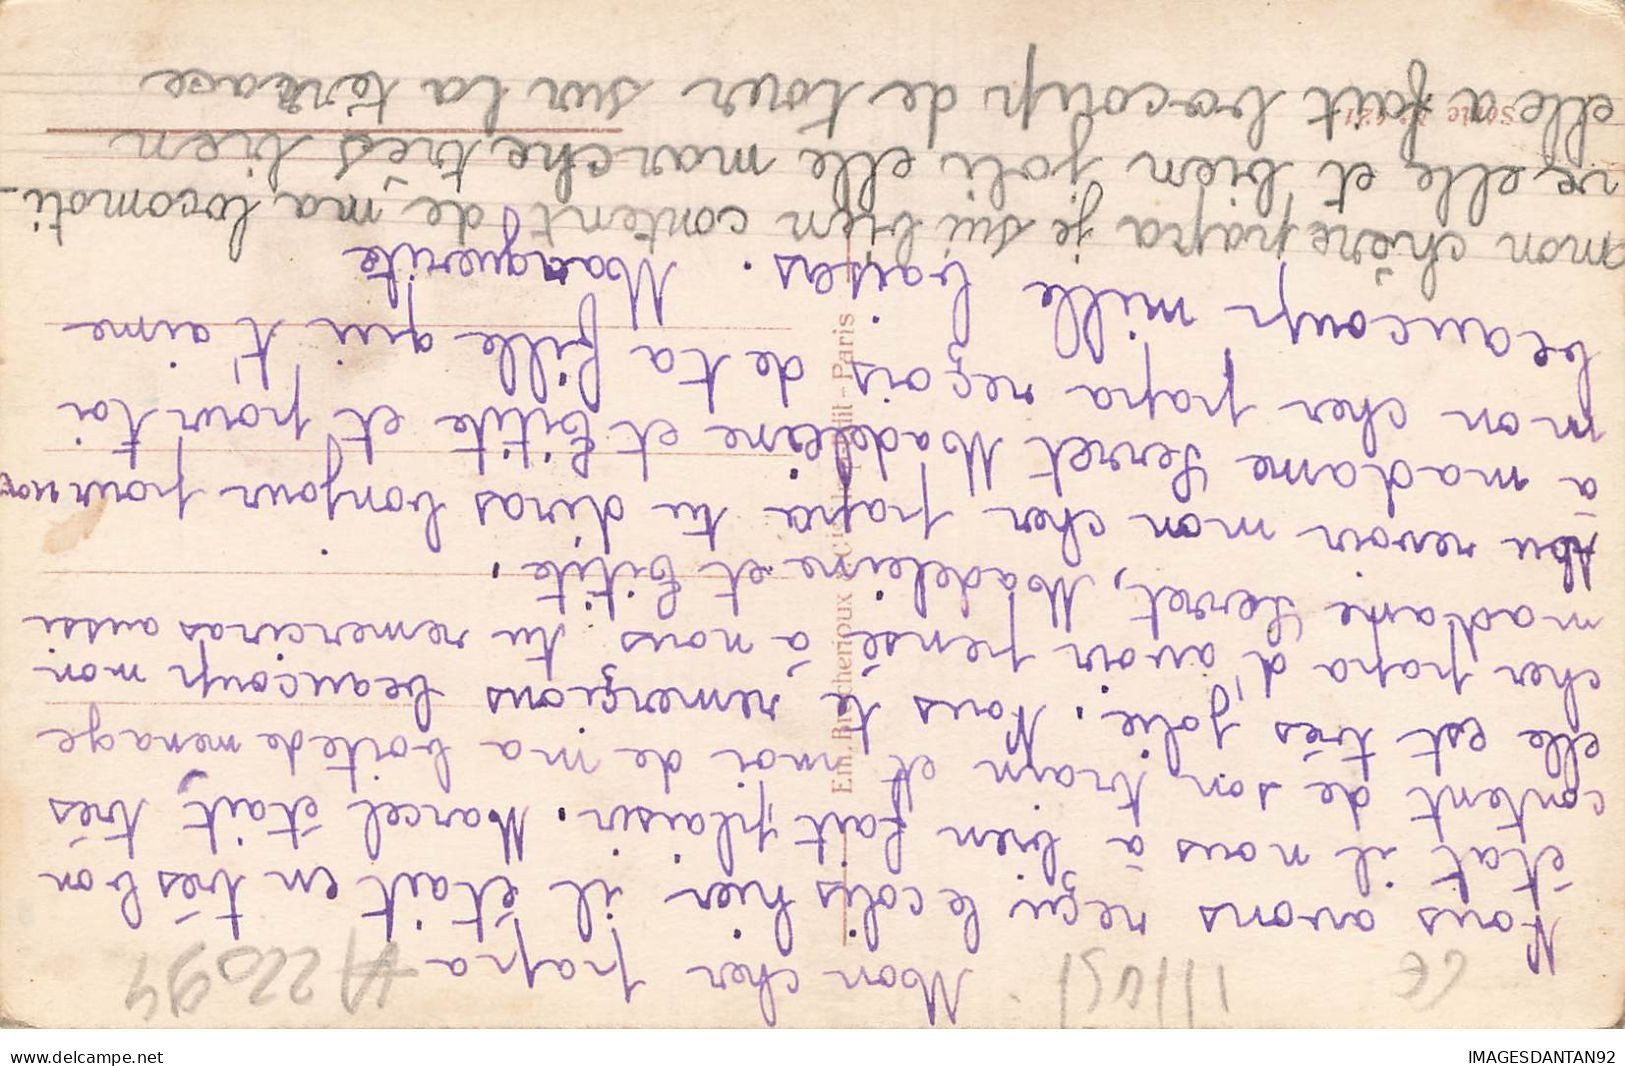 Mon cher papa
Nous avons reçu le colis hier il était en très bon
état il nous à bien fait plaisir. Marcel était très
content de son train et moi de ma boite de menage
elle est très jolie. Nous te remercions beaucoup mon
cher papa d'avoir pensé à nous tu remerciras aussi
madame Servet, Madeleine et Titite.
Au revoir mon cher papa tu diras bonjour pour nous
à madame Servet Madeleine et Titite et pour toi
mon cher papa reçois de ta fille qui t'aime
beaucoup mille baisers. Marguerite
mon chère papa je sui bien content de ma locomoti-
ve elle et bien joli elle marche très bien
elle a fait bocoup de tour sur la terrace
Paris
A 22094
illust
CE
www.delcampe.net
IMAGESDANTAN92